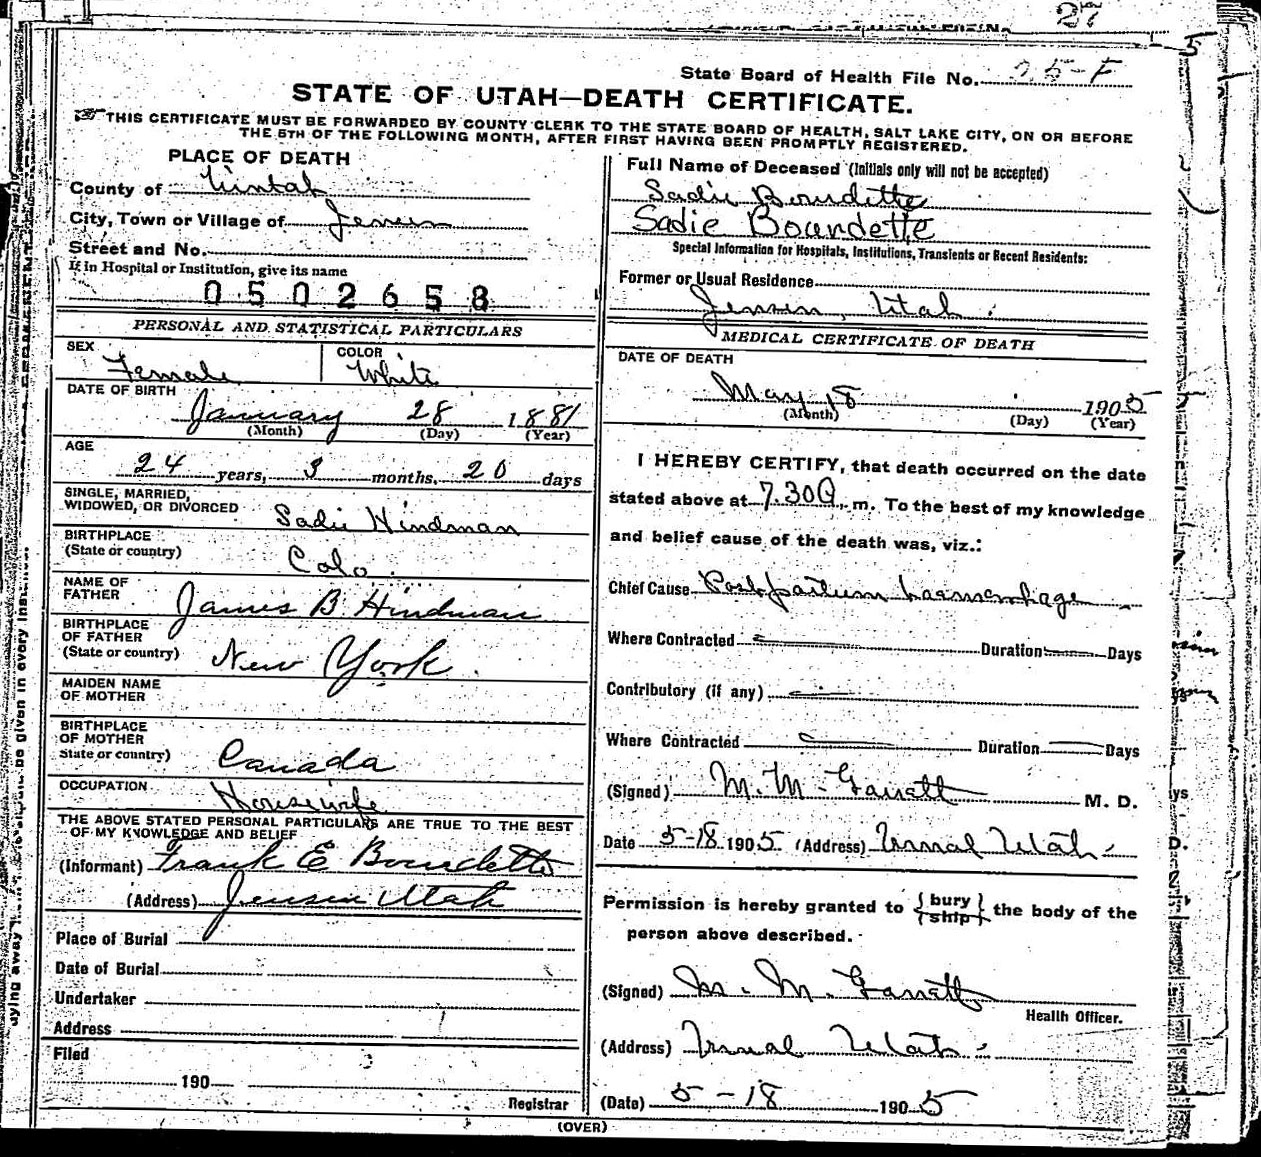 27
State Board of Health File No. 25-F
STATE OF UTAH—DEATH CERTIFICATE.
THIS CERTIFICATE MUST BE FORWARDED BY COUNTY CLERK TO THE STATE BOARD OF HEALTH, SALT LAKE CITY, ON OR BEFORE
THE 5TH OF THE FOLLOWING MONTH, AFTER FIRST HAVING BEEN PROMPTLY REGISTERED.
PLACE OF DEATH
County of Uintah
City, Town or Village of Jensen
Street and No.
If in Hospital or Institution, give its name
0502658
PERSONAL AND STATISTICAL PARTICULARS
SEX Female COLOR White
DATE OF BIRTH
January 28 1881
(Month) (Day) (Year)
AGE
24 years, 3 months, 20 days
SINGLE, MARRIED,
WIDOWED, OR DIVORCED Sadie Hindman
BIRTHPLACE
(State or country) Colo.
NAME OF
FATHER James B Hindman
BIRTHPLACE
OF FATHER
(State or country) New York.
MAIDEN NAME
OF MOTHER
BIRTHPLACE
OF MOTHER
State or country) Canada
OCCUPATION Housewife
THE ABOVE STATED PERSONAL PARTICULARS ARE TRUE TO THE BEST
OF MY KNOWLEDGE AND BELIEF
(Informant) Frank E Bourdette
(Address) Jensen Utah
Place of Burial
Date of Burial
Undertaker
Address
Filed
190
Registrar
Full Name of Deceased (Initials only will not be accepted)
Sadie Bourdette
Sadie Bourdette
Special Information for Hospitals, Institutions, Transients or Recent Residents:
Former or Usual Residence
Jensen, Utah.
MEDICAL CERTIFICATE OF DEATH
DATE OF DEATH
May 18 1905
(Month) (Day) (Year)
I HEREBY CERTIFY, that death occurred on the date
stated above at 7.30 a. m. To the best of my knowledge
and belief cause of the death was, viz.:
Chief Cause Post partum haemorrhage
Where Contracted Duration Days
Contributory (if any)
Where Contracted Duration Days
(Signed) M. M. Garrett M. D.
Date 5-18 1905 (Address) Vernal Utah
Permission is hereby granted to { bury } the body of the
{ ship }
person above described.
(Signed) M. M. Garrett
Health Officer.
(Address) Vernal Utah
(Date) 5-18 1905
(OVER)